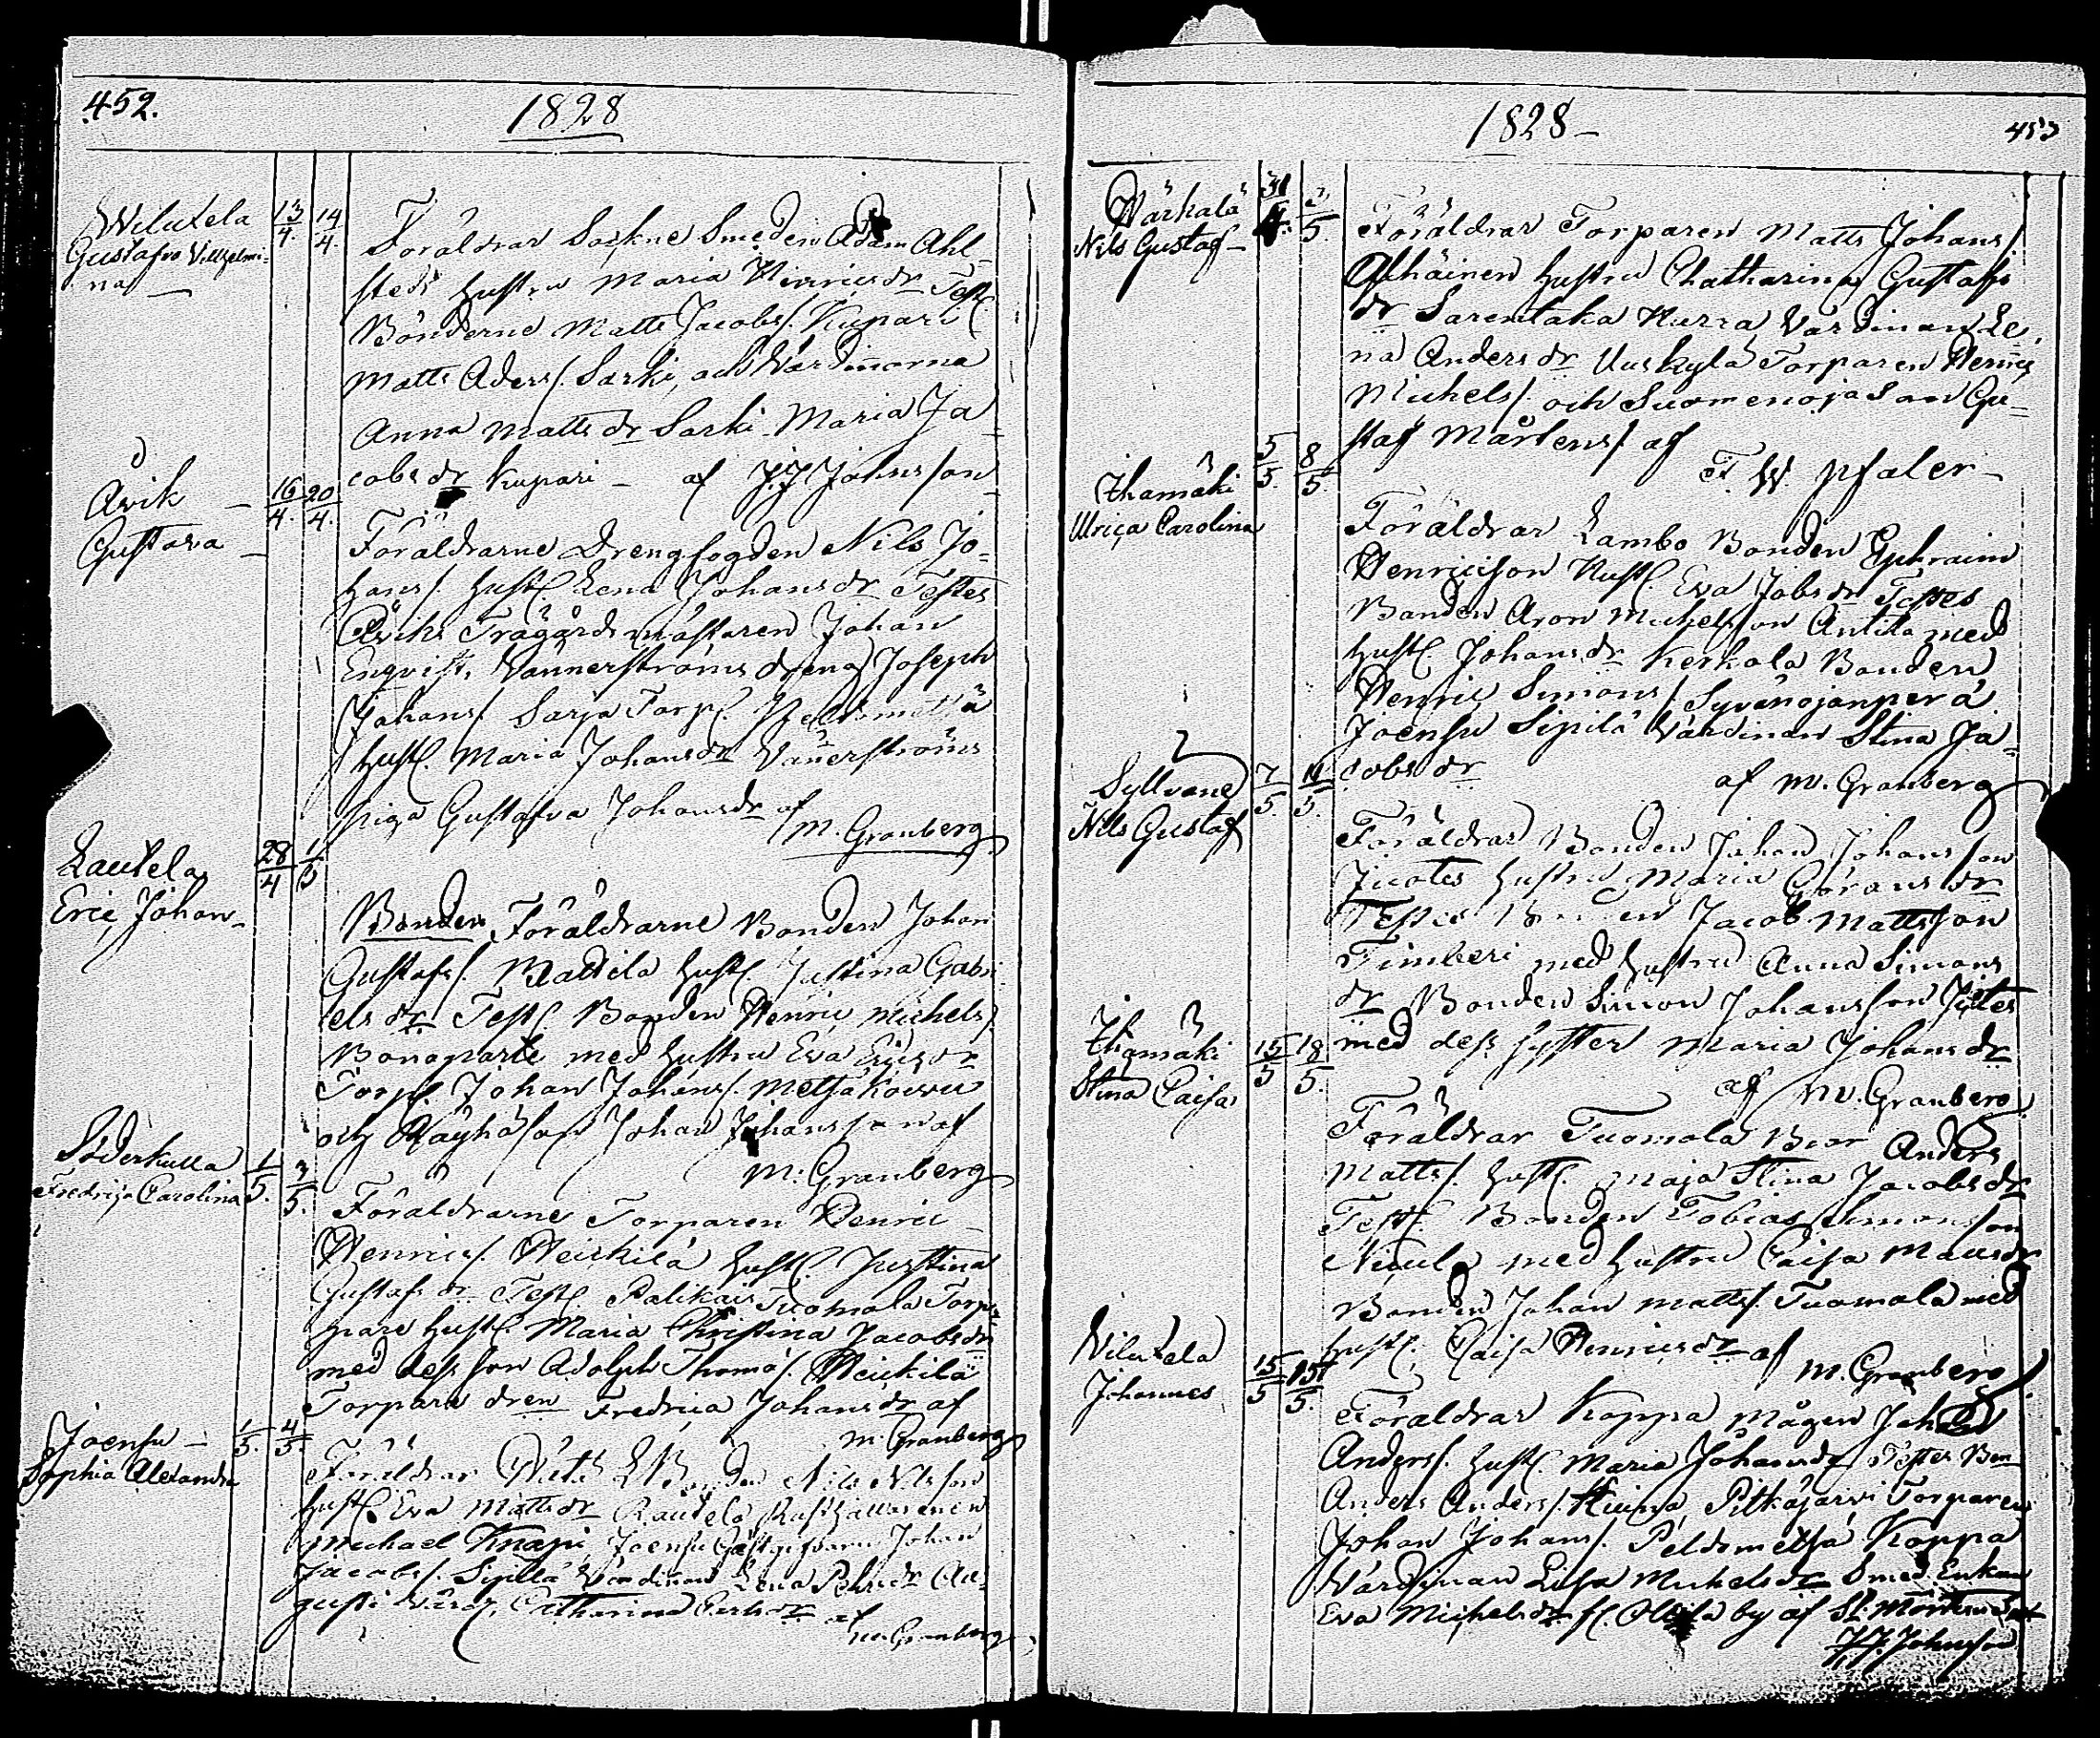 452.
1828
Wilutela
Gustafva Villhelmi-
na
13/4. 14/4.
Föräldrar Sockne Smeden Adam Ahl-
stedt hustru Maria Henricsdr Test.
Bönderne Matts Jacobs/. Kupari
Matts Aders/. Sarki, och Värdinnorna
Anna Mattsdr Sarki Maria Ja-
cobsdr Kupari - af J.J Johnsson
Åvik
Gustava
16/4. 20/4.
Föräldrarne Drengfogden Nils Jo-
hans/. hust. Lena Johansdr Testes
Åviks Trägårdsmästaren Johan
Enqvist, Vännerströms dreng Joseph
Johans/. Sarja Torp.
hust. Maria Johansdr Vännerströms
piga Gustafva Johansdr af
M. Granberg
Lautela
Eric Johan
28/4 1/5
Bonden Föräldrarne Bonden Johan
Gustafs/. Mattila hust. Justina Gabri
elsdr Test. Bonden Henric Michels/.
Bonaparte med hustru Eva Ericsdr
Torp. Johan Johans/. Metsäkowu
och Johan Johansson af
M. Granberg
Söderkulla
Fredrica Carolina
1/5. 3/5.
Föräldrarne Torparen Henric
Henrics/. Heickilä hust. Justina
Gustafsdr Test. Palikais Tuomola Torp-
pare hust. Maria Christina Jacobsdr
med dess son Adolph Thomas/. Heickilä
Torpare dren Fredrica Johansdr af
M. Granberg
Joensu
Sophia Alexandra
1/5. 4/5.
Föräldrar Bonden Nils Nilsson
hust. Eva Mattsdr Rautela Rusthållaremen
Michael Knapi Joensu Gästgifvaren Johan
Jacobs/. Sipilä Värdinan Lena
Catharina af
M. Granberg
1828
453
Wärkalä
Nils Gustaf
31/4. 3/5.
Föräldrar Torparen Matts Johans/.
hustru Chatharina Gustafs
dr Sarentaka Kurra, Värdinan Le
na Andersdr Uuskylä Torparen Henric
Michels/. och Suomenoja Son Gu-
staf Mårtens/. af
F. W Pfaler
Ihamäki
Ulrica Carolina
5/5. 8/5.
Föräldrar Lambo Bonden Ephraim
Henricsson Hust. Eva Jobsdr Testes
Bonden Aron Michelsson Antila med
hust. Johansdr Kerkola Bonden
Henric Simons/. Syvänojanperä
Joensu Sipilä Värdinan Stina Ja-
cobsdr af M. Granberg
Syllvana
Nils Gustaf
7/5. 11/5.
Föräldrar Bonden Johan Johansson
hustru Maria Göransdr
Testes Bonden Jacob Mattsson
Timberi med hustru Anna Simons
dr Bonden Simon Johansson
med dess syster Maria Johansdr
af M. Granberg
Ihamäki
Stina Caisa
15/5 18/5.
Föräldrar Tuomola Bror Anders
Matts/. hust. Maja Stina Jacobsdr
Test. Bonden Tobias Simonsson
Nicula med hustru Caisa
Bonden Johan Matts/. Tuomola med
hust. Caisa Henricsdr af
M. Granberg
Vilutela
Johannes
15/5 15/5.
Föräldrar Koppa Mågen Johan
Anders/. hust. Maria Johansdr Testes Bon
Anders Anders/. Pitkäjärvi Torparen
Johan Johans/. Peldometsä Koppa
Värdinan Lisa Michelsdr Smed Enkan
Eva Michelsdr fr. by af St. Mårtens
J.J. Johnsson